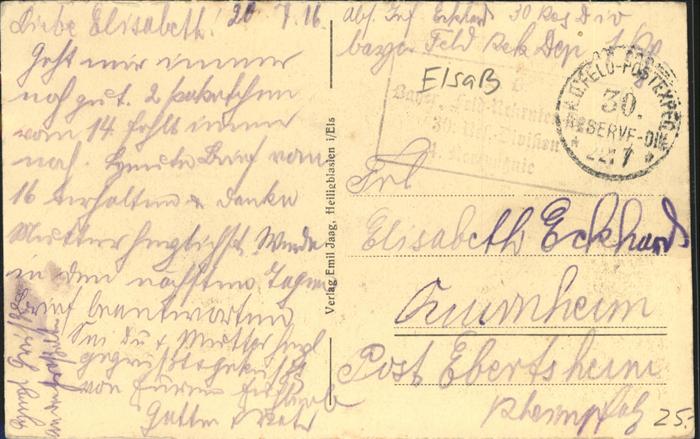 Liebe Elisabeth! 20 7. 16.
Geht mir immer
noch gut. 2 paketchen
vom 14 fehlt immer
noch. Heute Brief vom
16 erhalten & danke
Mutter herzlichst. Werde
in den nächsten Tagen
Brief beantworten
Sei du & Mutter herzl
gegrüßt & geküßt
von Eurem
Gatten & Vater
Verlag Emil Jaag, Heiligblasien i/Els
Abs. Inf. Eckhard 30 Res Div
bayer Feld Rek Dep
Elsaß
Bayer. Feld-Rekruten
30. Res. Division
K.D. FELD-POSTEXPED.
30.
RESERVE-DIV.
* 22.7 *
Frl
Elisabeth Eckhard
Post Ebertsheim
Rheinpfalz
25.-